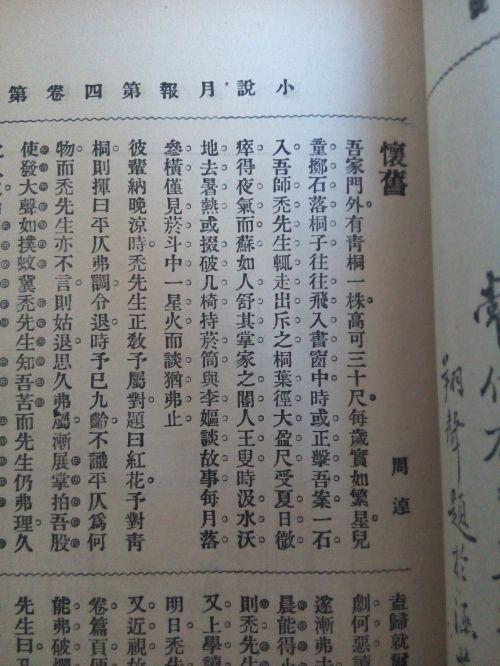 小說月報第四卷第
懷舊
周逴
吾家門外有青桐一株高可三十尺每歲實如繁星兒
童擲石落桐子往往飛入書窗中時或正擊吾案一石
入吾師禿先生輒走出斥之桐葉徑大盈尺受夏日微
瘁得夜氣而蘇如人舒其掌家之閽人王叟時汲水沃
地去暑熱或掇破几椅持菸筒與李嫗談故事每月落
參橫僅見菸斗中一星火而談猶弗止
彼輩納晚涼時禿先生正敎予屬對題曰紅花予對青
桐則揮曰平仄弗調令退時予已九齡不識平仄爲何
物而禿先生亦不言則姑退思久弗屬漸展掌拍吾股
使發大聲如撲蚊冀禿先生知吾苦而先生仍弗理久
盍歸就
劇何惡
遂漸弗
晨能得小
則禿先
又上學讀
明日禿
又近視故
卷篇頁便
能弗破
先生曰孔
聲題於